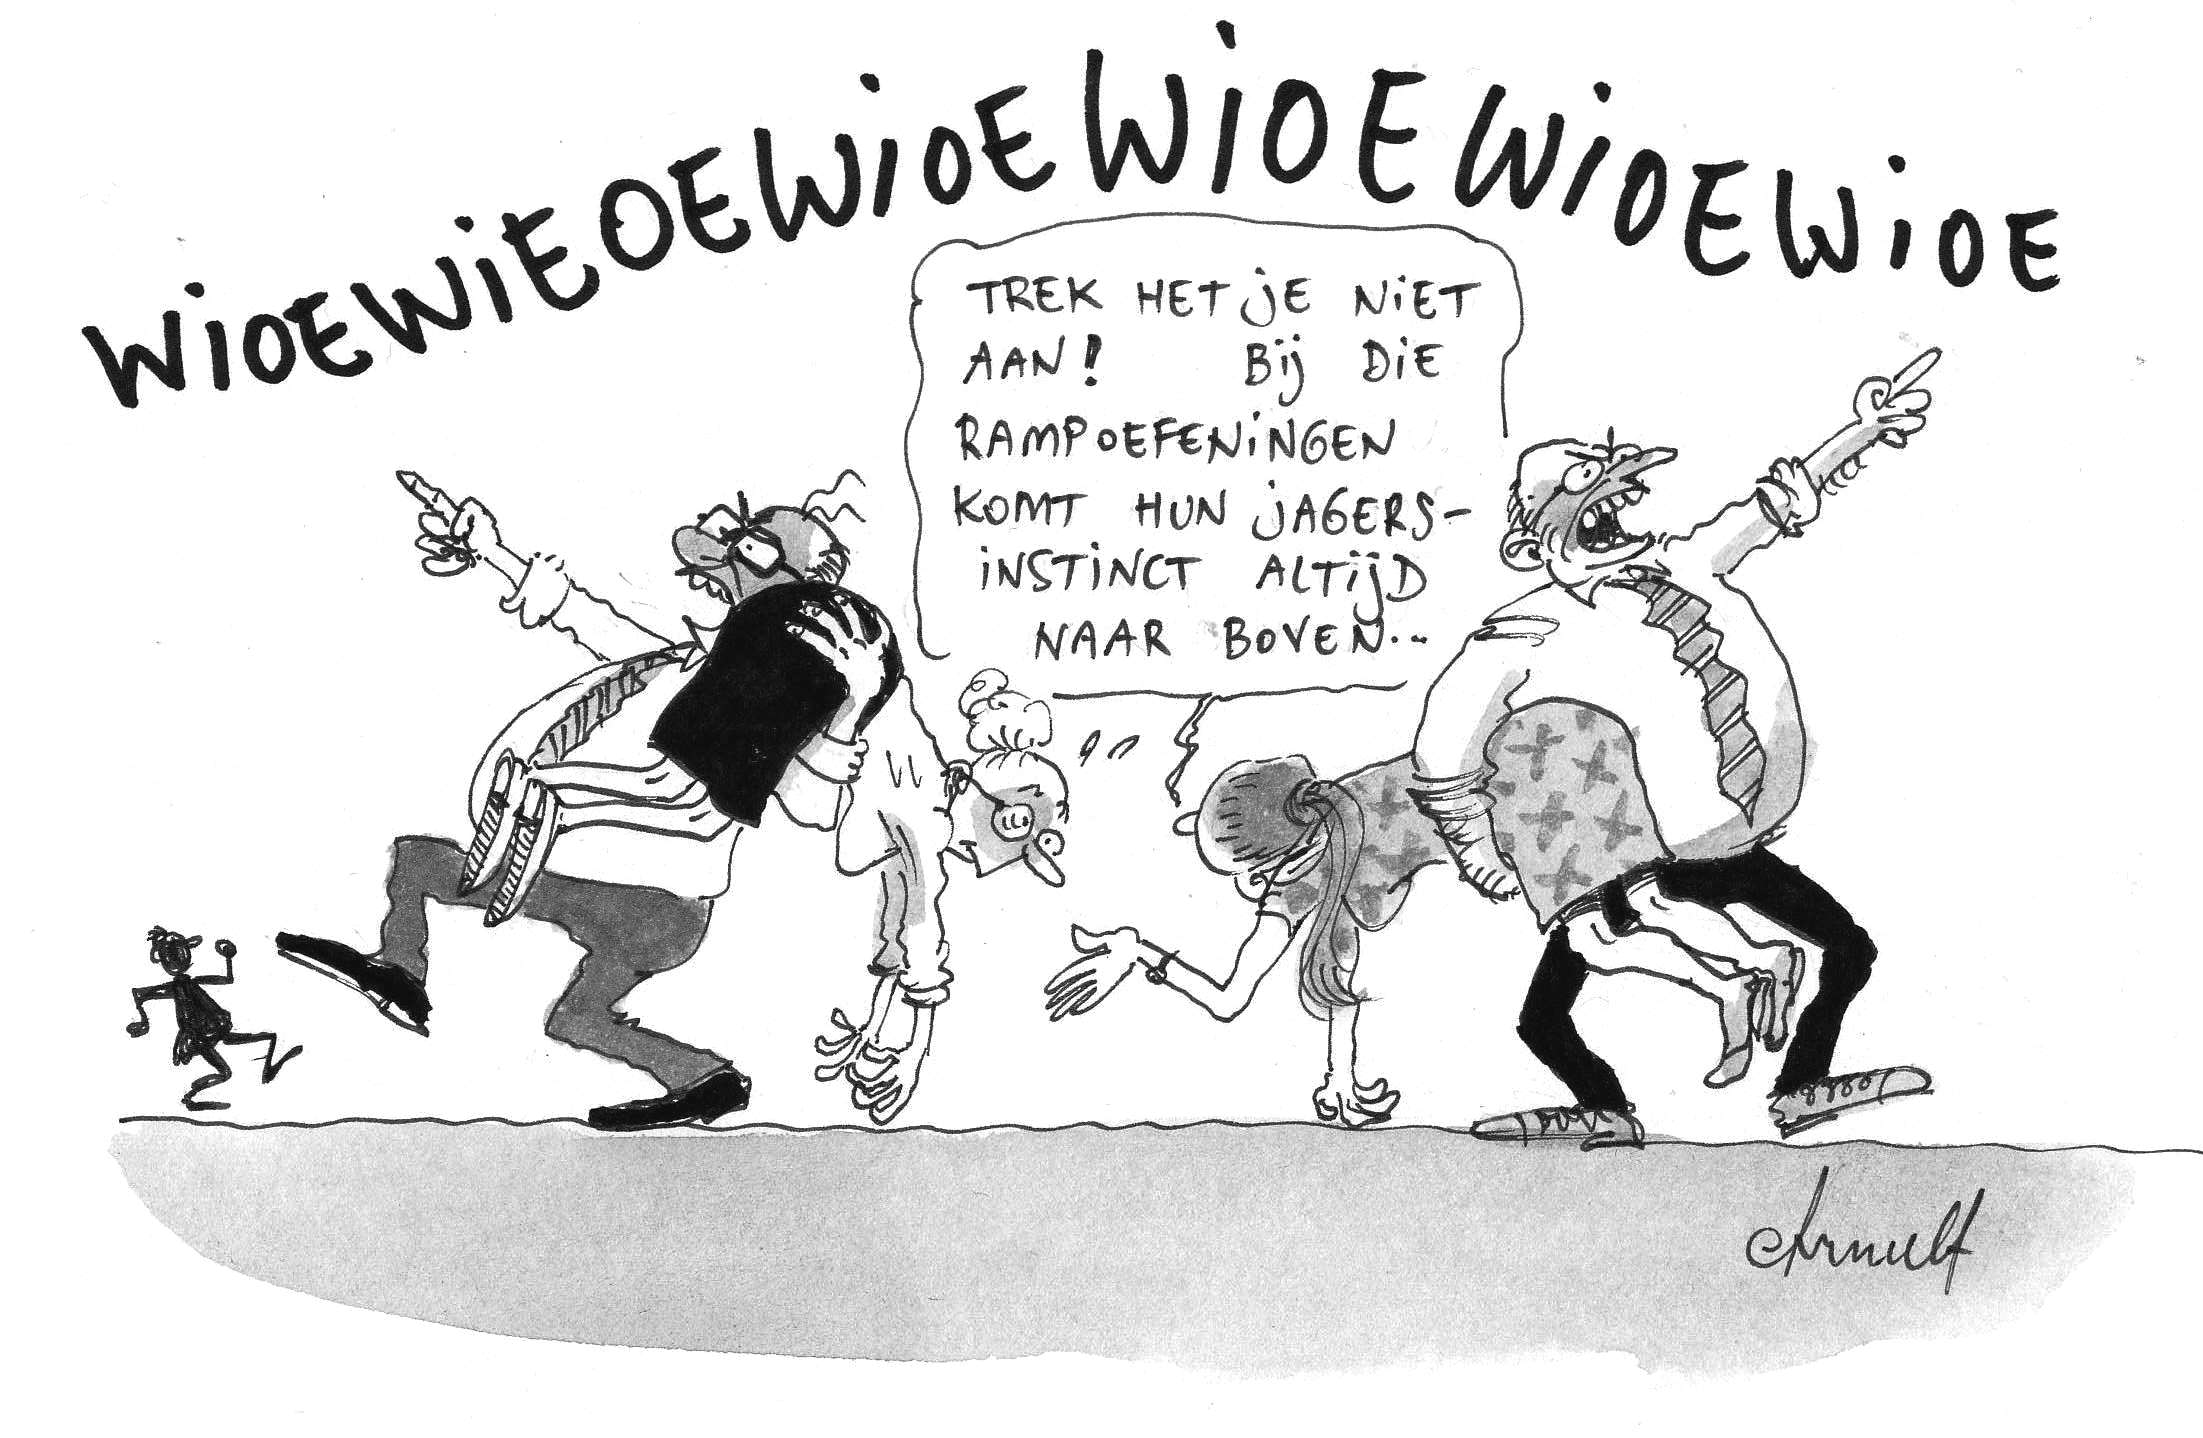 WiOEWiEOEWiOEWiOEWiOEWiOE
TREK HET jE NiET
AAN! Bij DiE
RAMPOEFENiNGEN
KOMT HUN jAGERS-
iNSTiNCT ALTijD
NAAR BOVEN...
Arnulf